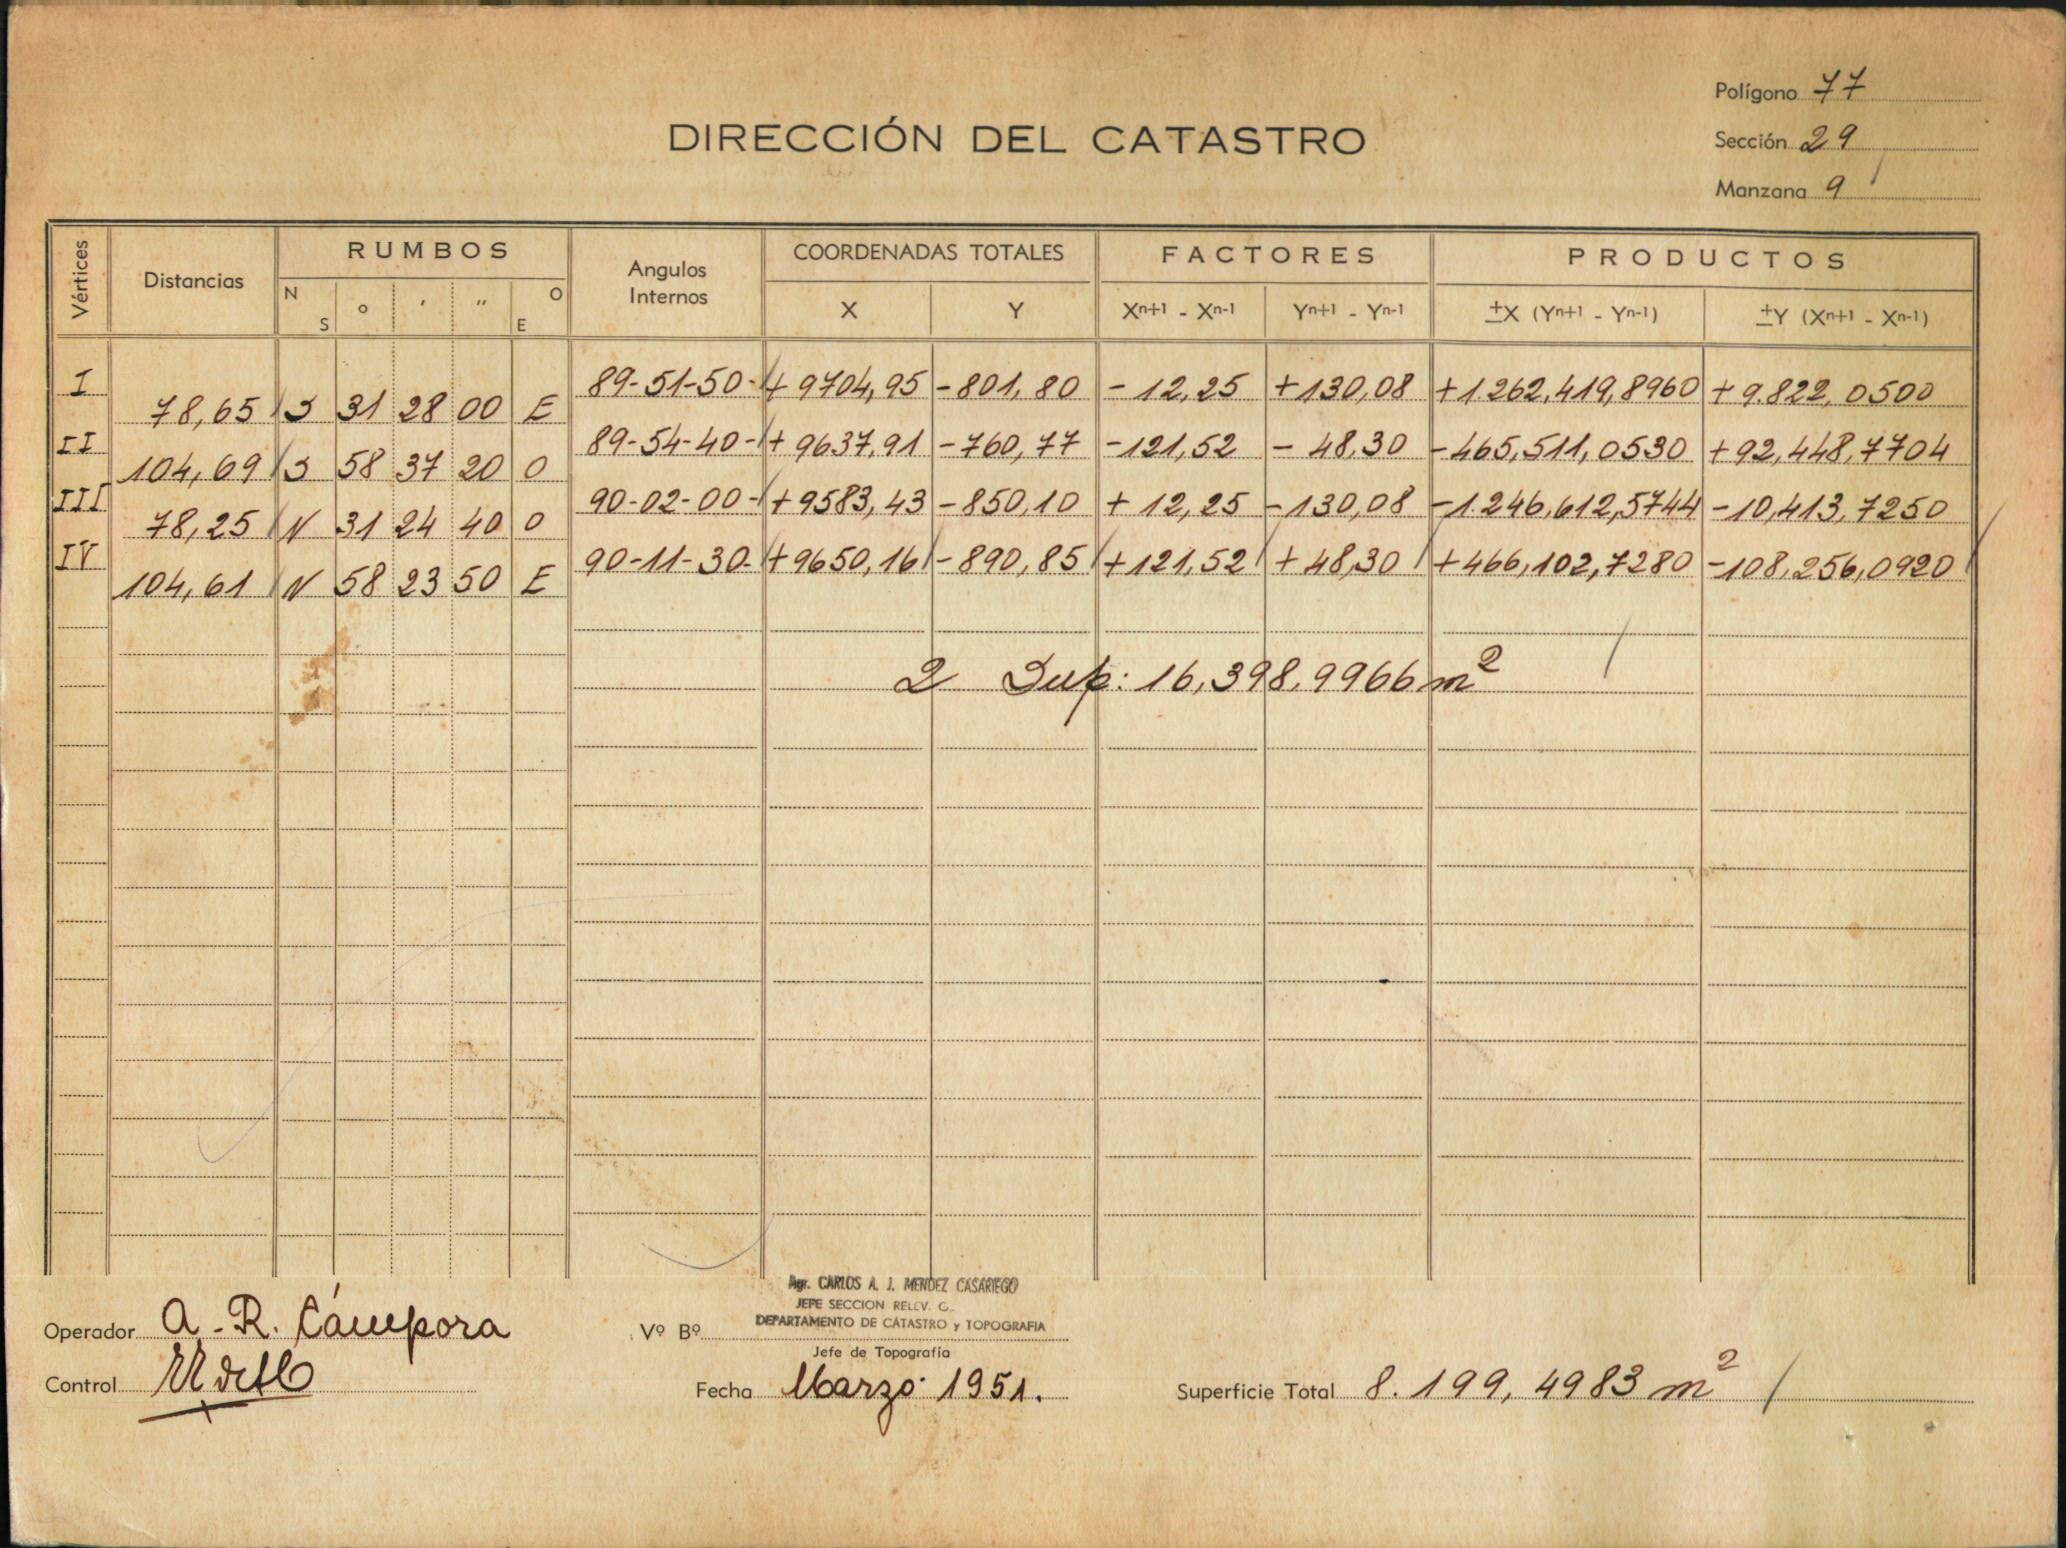 Polígono 77
DIRECCIÓN DEL CATASTRO
Sección 29
Manzana 9
Vértices Distancias RUMBOS Angulos Internos COORDENADAS TOTALES FACTORES PRODUCTOS
N S ° ' " O E X Y Xn+1 - Xn-1 Yn+1 - Yn-1 ±X (Yn+1 - Yn-1) ±Y (Xn+1 - Xn-1)
I 89-51-50- +9704,95 -801,80 -12,25 +130,08 +1.262,419,8960 +9.822,0500
78,65 S 31 28 00 E
II 89-54-40- +9637,91 -760,77 -121,52 -48,30 -465,511,0530 +92,448,7704
104,69 S 58 37 20 O
III 90-02-00- +9583,43 -850,10 +12,25 -130,08 -1.246,612,5744 -10,413,7250
78,25 N 31 24 40 O
IV 90-11-30- +9650,16 -890,85 +121,52 +48,30 +466,102,7280 -108,256,0920
104,61 N 58 23 50 E
2 Sup: 16,398,9966 m2
Agr. CARLOS A. J. MENDEZ CASARIEGO
JEFE SECCION RELEV. G.
DEPARTAMENTO DE CATASTRO y TOPOGRAFIA
Operador A.-R. Cámpora Vº Bº
Jefe de Topografía
Control Fecha Marzo 1951. Superficie Total 8.199,4983 m2